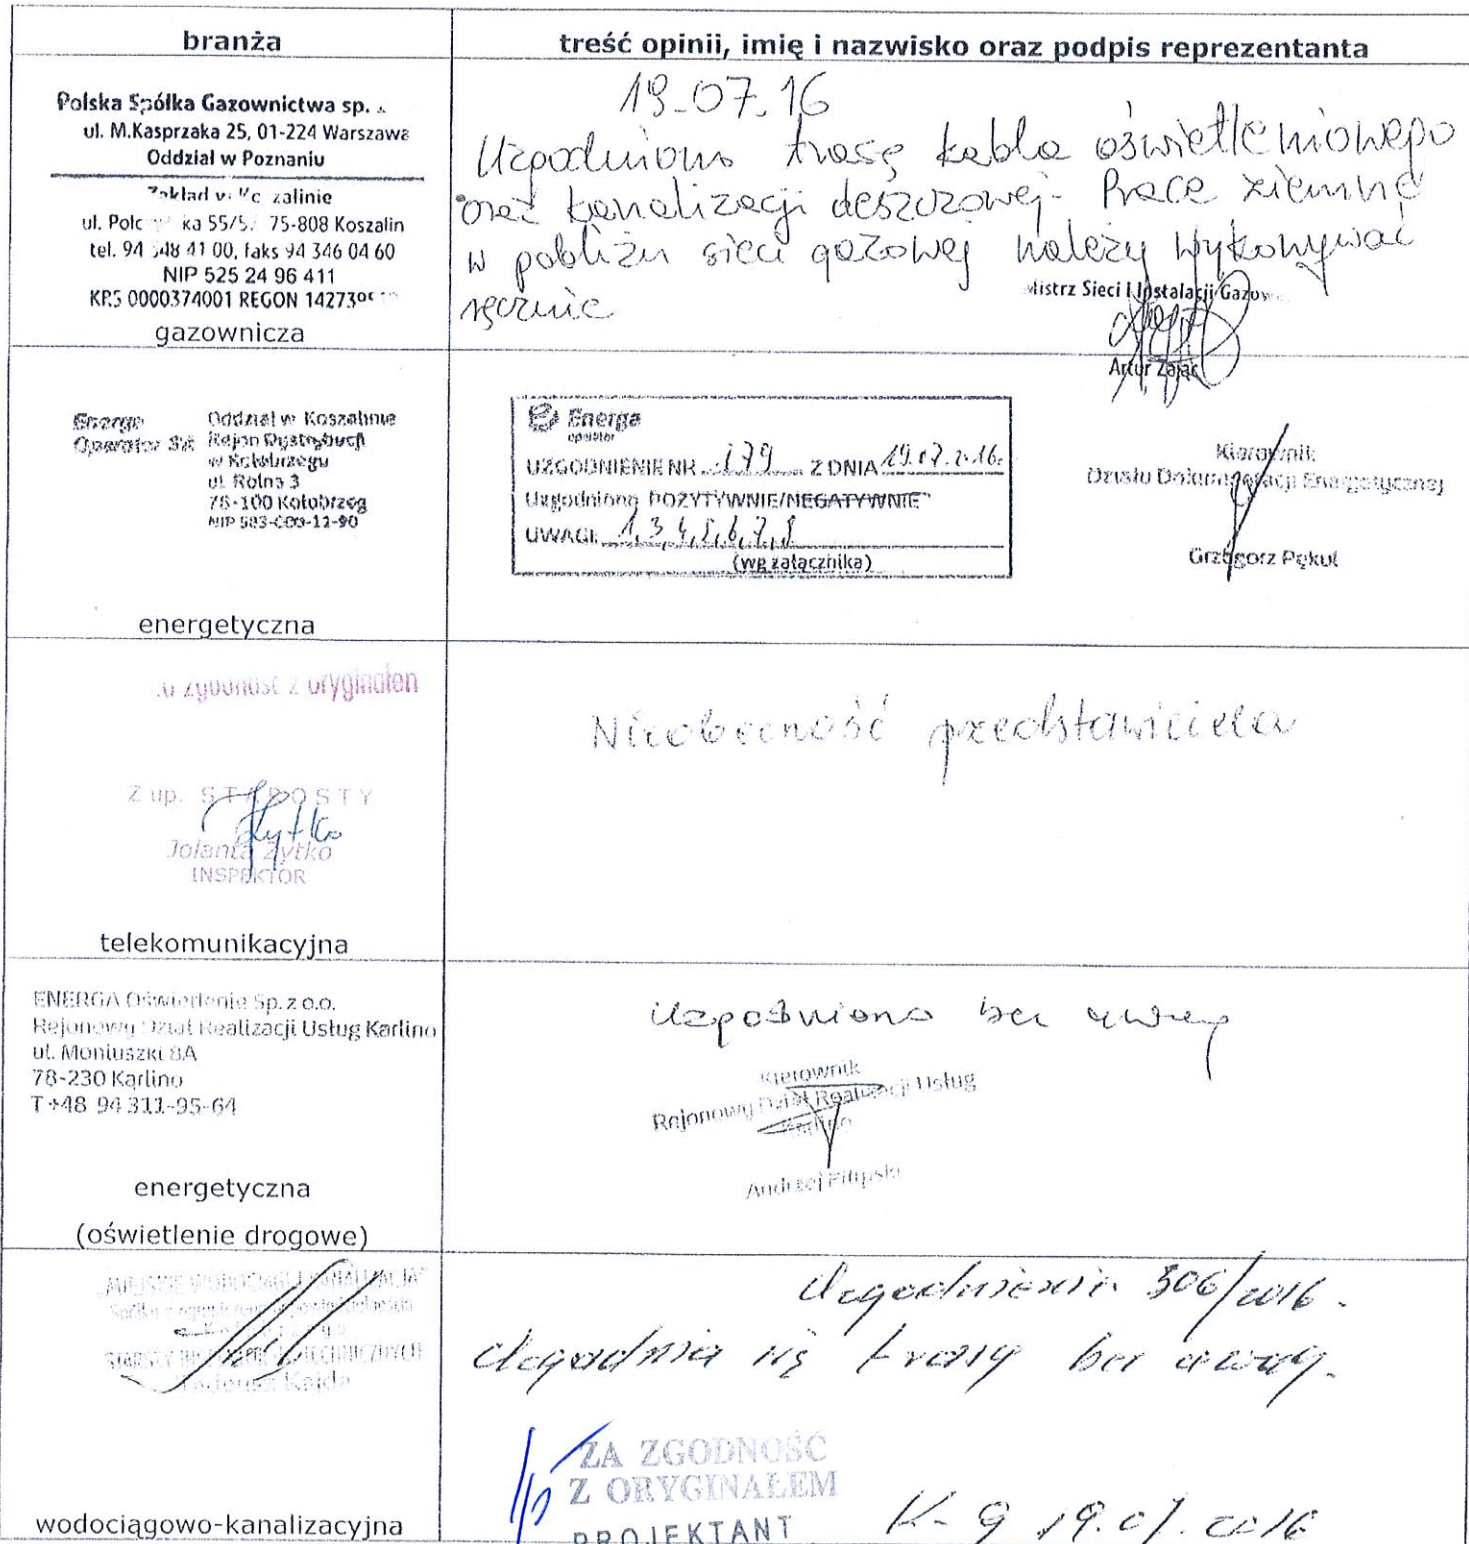 branża
treść opinii, imię i nazwisko oraz podpis reprezentanta
Polska Spółka Gazownictwa sp.
ul. M.Kasprzaka 25, 01-224 Warszawa
Oddział w Poznaniu
Zakład w Koszalinie
ul. Połc ka 55/5 75-808 Koszalin
tel. 94 348 41 00, faks 94 346 04 60
NIP 525 24 96 411
KRS 0000374001 REGON 14273
gazownicza
19.07.16
Uzgodniono trasę kabla oświetleniowego
oraz kanalizacji deszczowej. Prace ziemne
w pobliżu sieci gazowej należy wykonywać
ręcznie
Mistrz Sieci i Instalacji Gazow
Artur Zając
Energa Oddział w Koszalinie
Operator SA Rejon Dystrybucji
w Kołobrzegu
ul. Rolna 3
78-100 Kołobrzeg
NIP 583-000-11-90
energetyczna
Energa
operator
UZGODNIENIE NR 179 Z DNIA 19.07.2016.
Uzgodniono POZYTYWNIE/NEGATYWNIE*
UWAGI: 1, 3, 4, 5, 6, 7, 8
(wg załącznika)
Kierownik
Działu Dokumentacji Energetycznej
Grzegorz Pękul
zgodność z oryginałem
Z up. STAROSTY
Jolanta Żytko
INSPEKTOR
telekomunikacyjna
Nieobecność przedstawiciela
ENERGA Oświetlenie Sp. z o.o.
Rejonowy Dział Realizacji Usług Karlino
ul. Moniuszki 8A
78-230 Karlino
T +48 94 311-95-64
energetyczna
(oświetlenie drogowe)
Uzgodniono bez uwag
Kierownik
Rejonowy Dział Realizacji Usług
Karlino
Andrzej Filipski
Tadeusz Kajda
wodociągowo-kanalizacyjna
Uzgodnienie 306/2016.
Uzgadnia się trasy bez uwag.
ZA ZGODNOŚĆ
Z ORYGINAŁEM
PROJEKTANT
K-g 19.07.2016